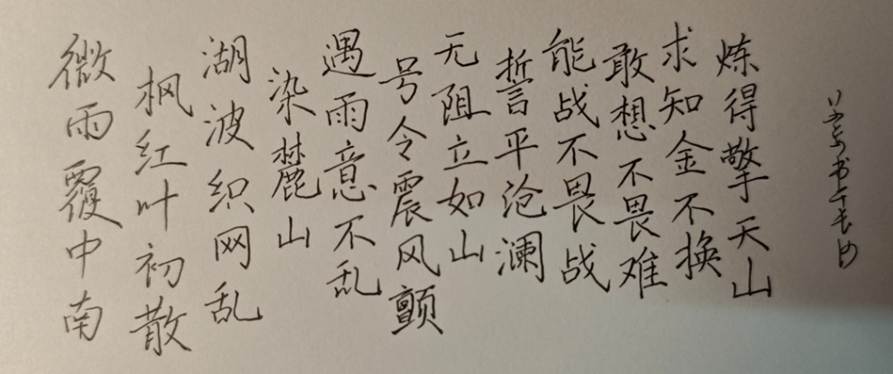 微雨覆中南
枫红叶初散
湖波织网乱
染麓山
遇雨意不乱
号令震风颤
无阻立如山
誓平沧澜
能战不畏战
敢想不畏难
求知金不换
炼得擎天山
书于长沙